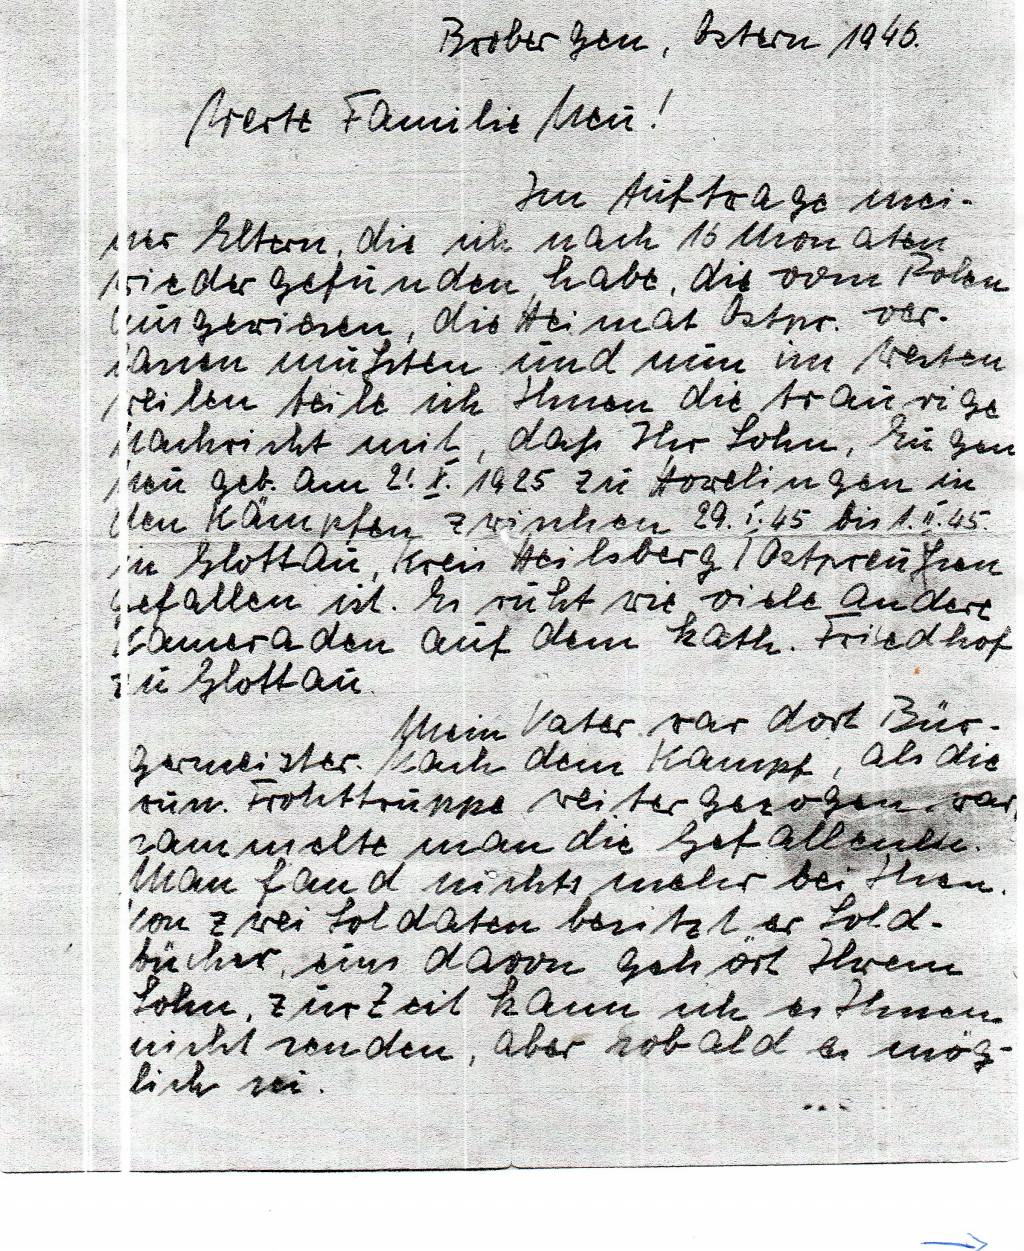 Brobergen, Ostern 1946.
Werte Familie Meu!
Im Auftrage mei-
ner Eltern, die ich nach 15 Monaten
wiedergefunden habe, die vom Polen
ausgewiesen, die Heimat Ostpr. ver-
lassen mußten und nun im Westen
weilen teile ich Ihnen die traurige
Nachricht mit, daß Ihr Sohn, Eugen
Meu geb. am 21. X. 1925 zu in
den Kämpfen zwischen 29. I. 45 bis 1. II. 45.
in Glottau, Kreis Heilsberg / Ostpreußen
gefallen ist. Er ruht wie viele andere
Kameraden auf dem kath. Friedhof
zu Glottau.
Mein Vater war dort Bür-
germeister. Nach dem Kampf, als die
russ. Fronttruppe weitergezogen war,
sammelte man die Gefallenen.
Man fand nichts mehr bei Ihnen.
Von zwei Soldaten besitzt er Sold-
bücher, eins davon gehört Ihrem
Sohn, zur Zeit kann ich es Ihnen
nicht senden, aber sobald es mög-
lich sei.
...